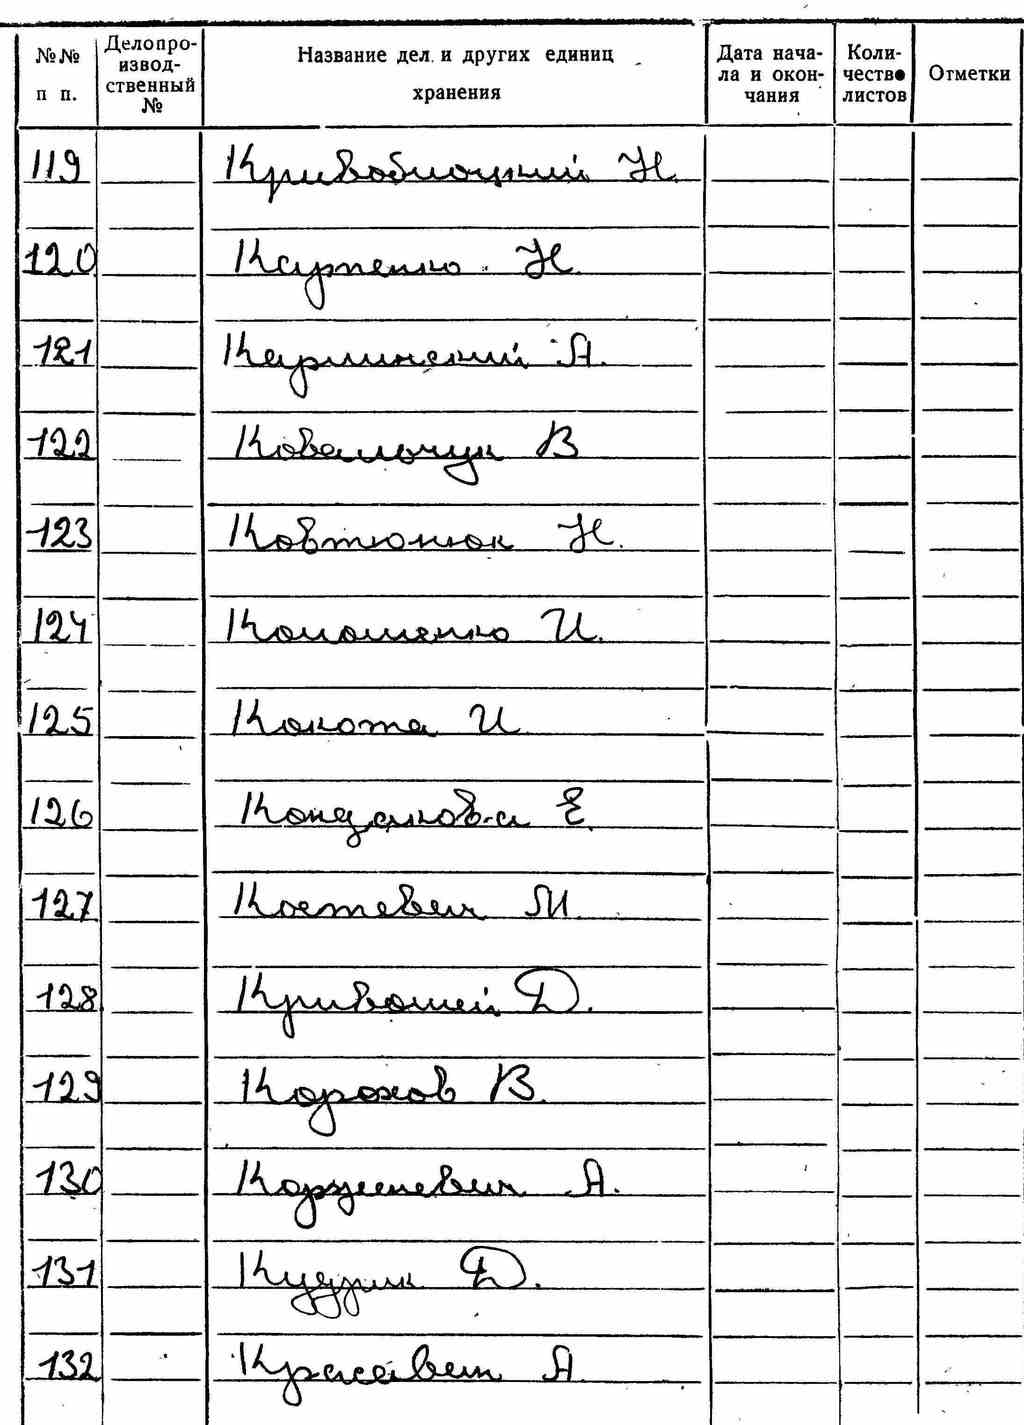 №№ п п. Делопроизводственный № Название дел и других единиц хранения Дата начала и окончания Количество листов Отметки
119 Кривоблоцкий Н.
120 Карпенко Н
121 Карлинский А.
122 Ковальчук В
123 Ковтюнюк Н.
124 Кономенко И.
125 Конота И
126 Конданова Е.
127 Костевич М
128 Кривошей Д.
129 Корохов В.
130 А.
131 Кудрик Д.
132 А